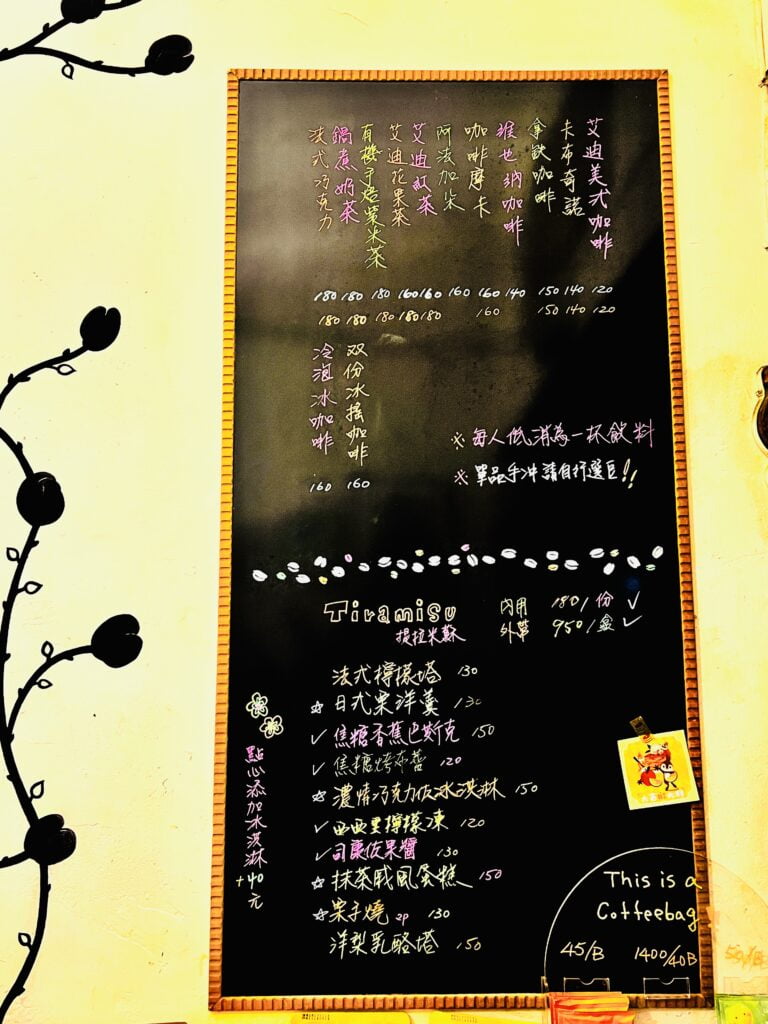 艾迪美式咖啡
卡布奇諾
拿鉄咖啡
維也納咖啡
咖啡摩卡
阿法加朵
艾迪紅茶
艾迪花果茶
有機手焙紫米茶
鍋煮奶茶
法式巧克力
180 180 180 160 160 160 160 140 150 140 120
180 180 180 180 180 160 150 140 120
双份冰搖咖啡
冷泡冰咖啡
160 160
※ 每人低消為一杯飲料
※ 單品手沖請自行選豆!!
Tiramisu 內用 180/份 ✓
提拉米蘇 外帶 950/盒 ✓
法式檸檬塔 130
☆ 日式栗洋羹 130
✓ 焦糖香蕉巴斯克 150
✓ 焦糖烤布蕾 120
☆ 濃情巧克力佐冰淇淋 150
✓ 西西里檸檬凍 120
✓ 司康佐果醬 130
☆ 抹茶戚風蛋糕 150
☆ 果子燒 2p 130
洋梨乳酪塔 150
點心添加冰淇淋+40元
This is a
Coffeebag
45/B 1400/40B